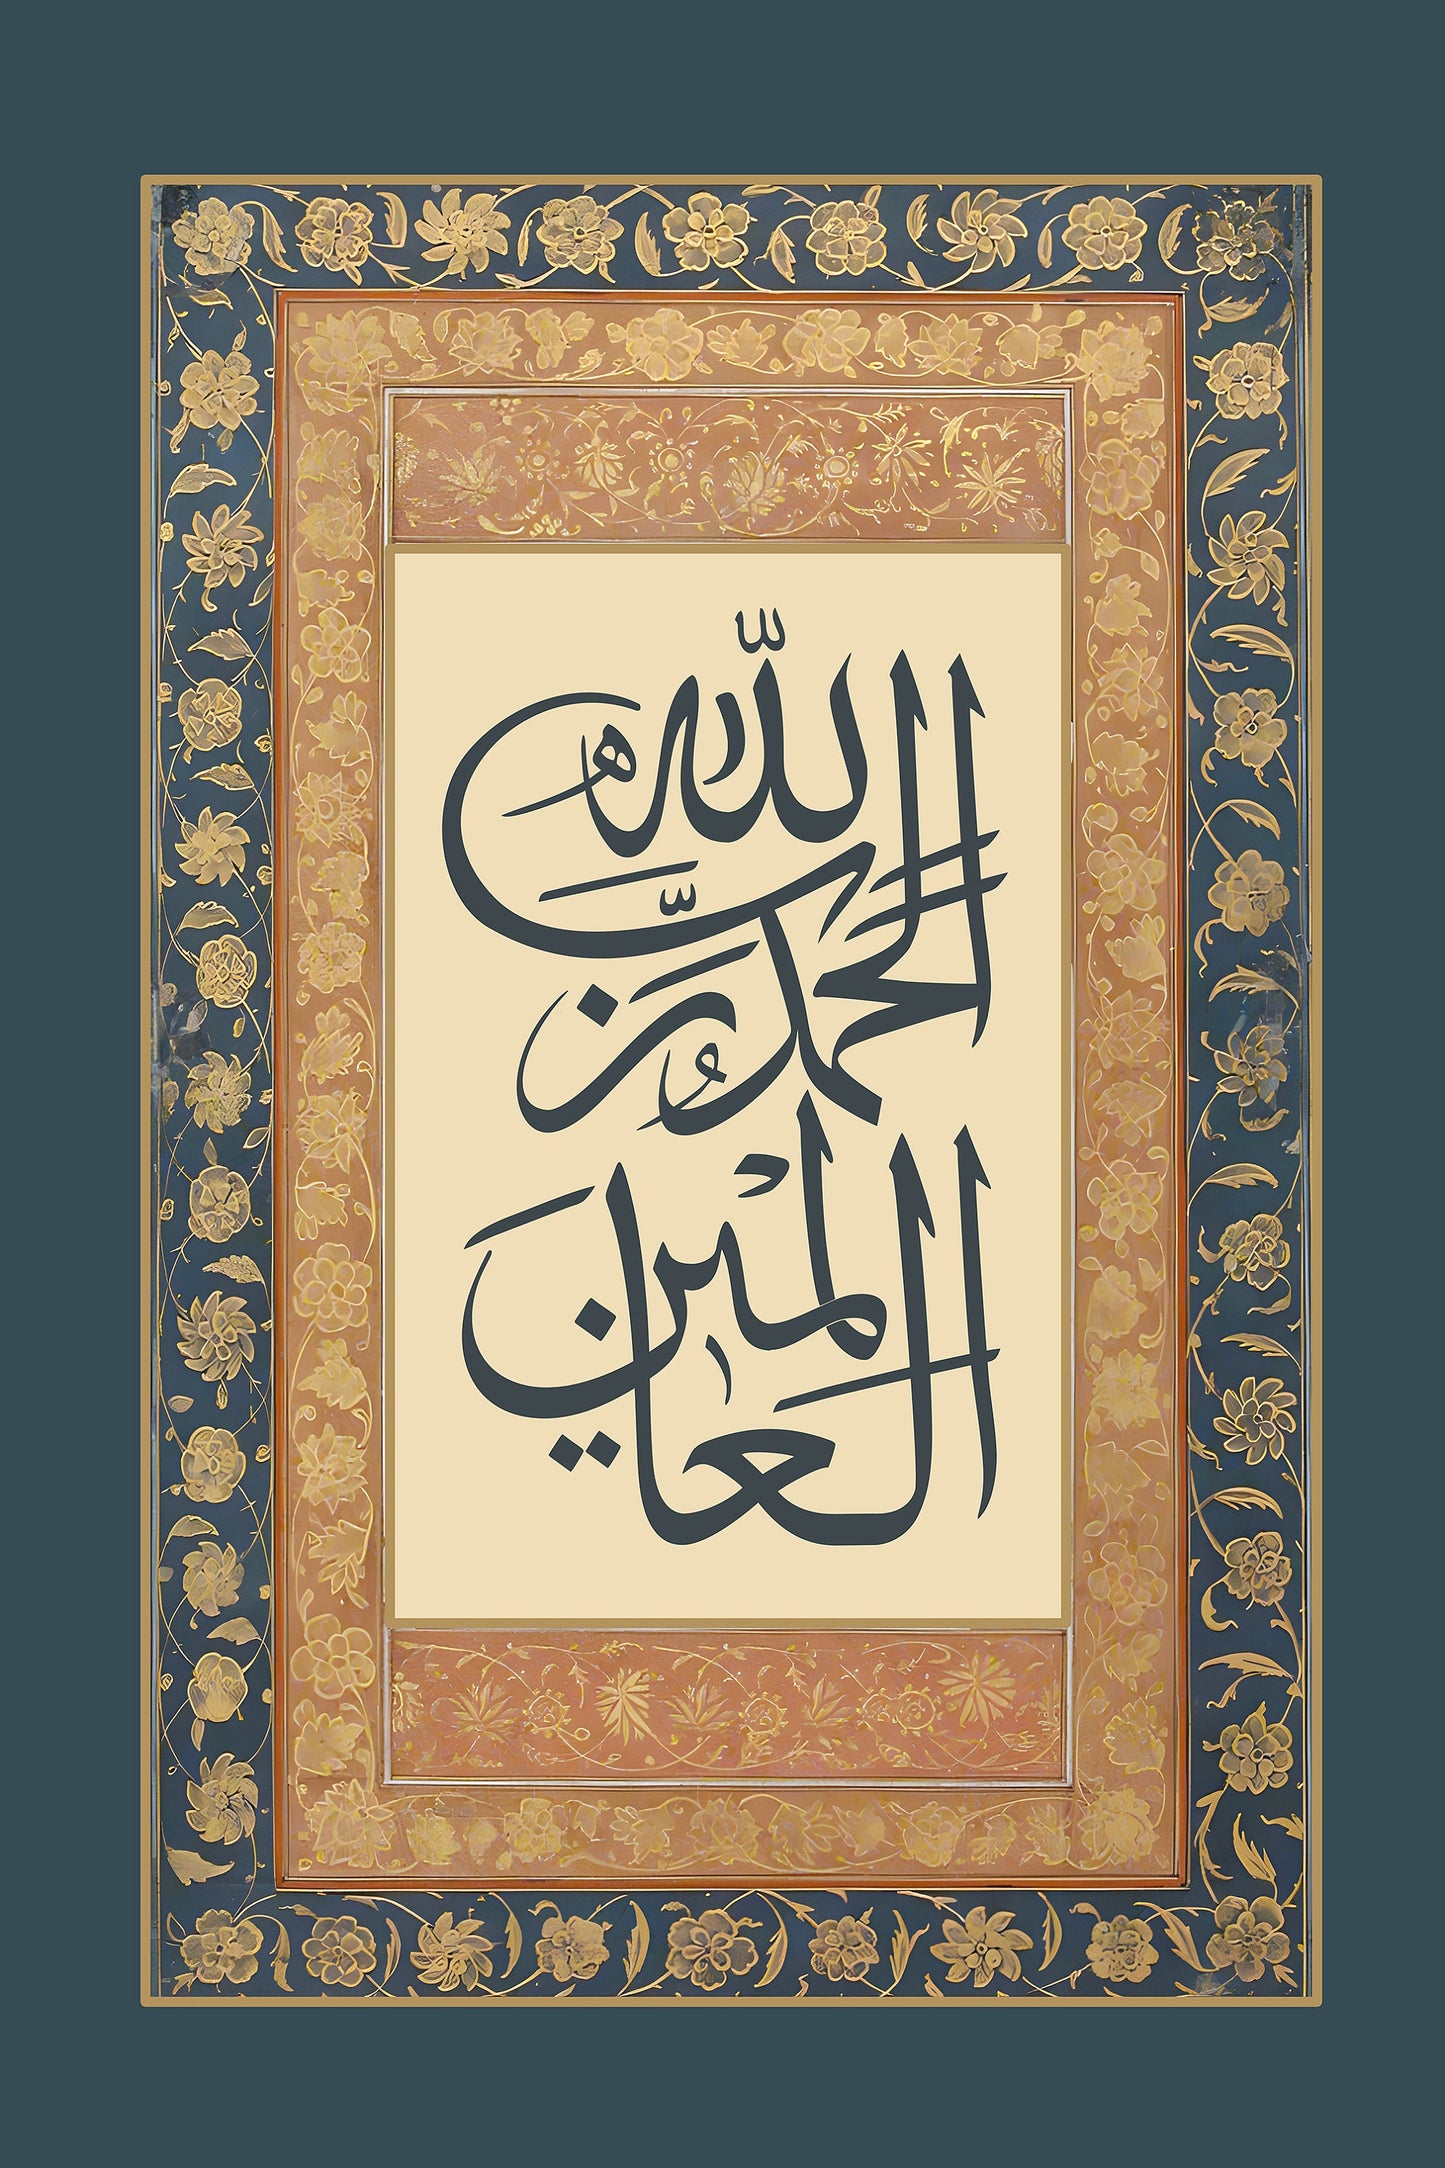 الحمدُ لله ربّ
العالمينَ